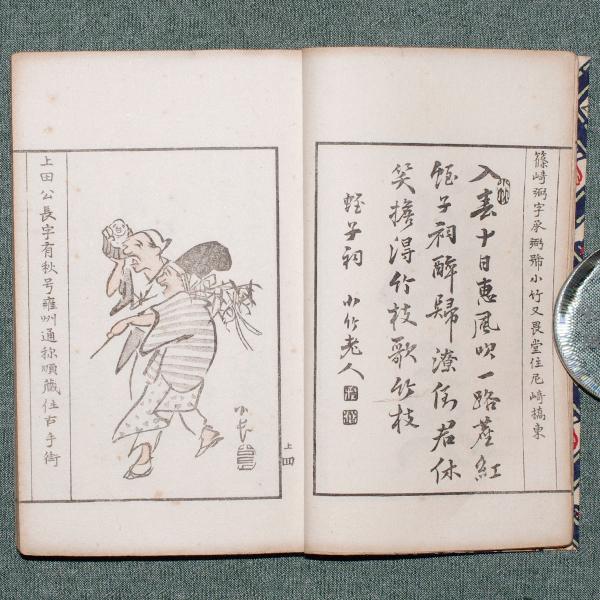 篠崎弼字承弼號小竹又畏堂住尼崎橋東
入春十日惠風吹一路塵紅
蛭子祠醉歸潦倒君休
笑擔得竹枝歌竹枝
蛭子祠 小竹老人
上 四
公長
上田公長字有秋号雍州通称順藏住古手街